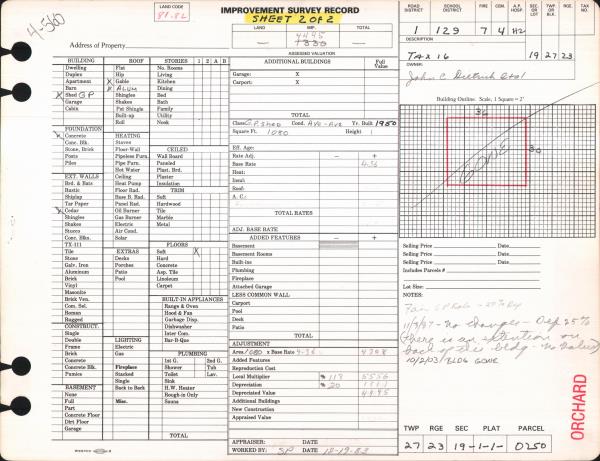 4-560
LAND CODE
81-82
IMPROVEMENT SURVEY RECORD
SHEET 2 OF 2
LAND IMP. TOTAL
4495
ASSESSED VALUATION
Address of Property
ROAD DISTRICT SCHOOL DISTRICT A.P. HOSP. SEC. OR LOT TWP. OR BLK. RGE. TAX NO.
1 129 7 4 H2
DESCRIPTION
TAX 16 19 27 23
OWNER:
Building Outline: Scale, 1 Square = 2'
36
30
GONE
BUILDING
Dwelling
Duplex
Apartment
Barn
x Shed GP
Garage
Cabin
FOUNDATION
x Concrete
Conc. Blk.
Stone, Brick
Posts
Piles
EXT. WALLS
Brd. & Bats
Rustic
Shiplap
Tar Paper
x Cedar
Shingles
Shakes
Stucco
Conc. Blkn.
TX-111
Tile
Stone
Galv. Iron
Aluminum
Brick
Vinyl
Masonite
Brick Ven.
Com. Sel.
Roman
Rugged
CONSTRUCT.
Single
Double
Frame
Brick
Concrete
Concrete Blk.
Pumice
BASEMENT
None
Full
Part
Concrete Floor
Dirt Floor
Garage
ROOF
Flat
Hip
x Gable
x Alum
Shingles
Shakes
Pat Shingle
Built-up
Roll
HEATING
Stoves
Floor-Wall
Pipeless Furn.
Pipe Furn.
Hot Water
Ceiling
Heat Pump
Floor Rad.
Base B. Rad.
Panel Rad.
Oil Burner
Gas Burner
Electric
Air Cond.
Solar
EXTRAS
Decks
Porches
Patio
Pool
LIGHTING
Electric
Gas
Fireplace
Stacked
Single
Back to Back
Misc.
STORIES 1 2 A B
No. Rooms
Living
Kitchen
Dining
Bed
Bath
Family
Utility
Nook
CEILED
Wall Board
Paneled
Plast. Brd.
Plaster
Insulation
TRIM
Soft
Hardwood
Tile
Marble
Metal
FLOORS
Soft x
Hard
Concrete
Asp. Tile
Linoleum
Carpet
BUILT-IN APPLIANCES
Range & Oven
Hood & Fan
Garbage Disp.
Dishwasher
Inter Com.
Bar-B-Que
PLUMBING
1st G. 2nd G.
Shower Tub
Toilet Lav.
Sink
H.W. Heater
Rough-in Only
Sauna
TOTAL
ADDITIONAL BUILDINGS Full Value
Garage: X
Carport: X
TOTAL
Class GP Shed Cond. Ave-Ave Yr. Built 1980
Square Ft. 1080 Height 1
Eff. Age:
Rate Adj. - +
Base Rate 4.36
Heat:
Insul:
Roof:
A. C.:
TOTAL RATES
ADJ. BASE RATE
ADDED FEATURES - +
Basement
Basement Rooms
Built-ins
Plumbing
Fireplace
Attached Garage
LESS COMMON WALL
Carport
Pool
Deck
Patio
TOTAL
ADJUSTMENT
Area 1080 x Base Rate 4.36 4708
Added Features
Reproduction Cost
Local Multiplier % 118 5556
Depreciation % 20 1111
Depreciated Value 4495
Additional Buildings
New Construction
Appraised Value
APPRAISER: DATE
WORKED BY: SP DATE 12-19-83
Selling Price Date
Selling Price Date
Selling Price Date
Includes Parcels #
Lot Size:
NOTES:
11/9/87 - No Changes - Dep 25%
(There is an extention on
back of this bldg - No Value)
10/2/03/ BLDG GONE
ORCHARD
TWP RGE SEC PLAT PARCEL
27 23 19-1-1- 0250